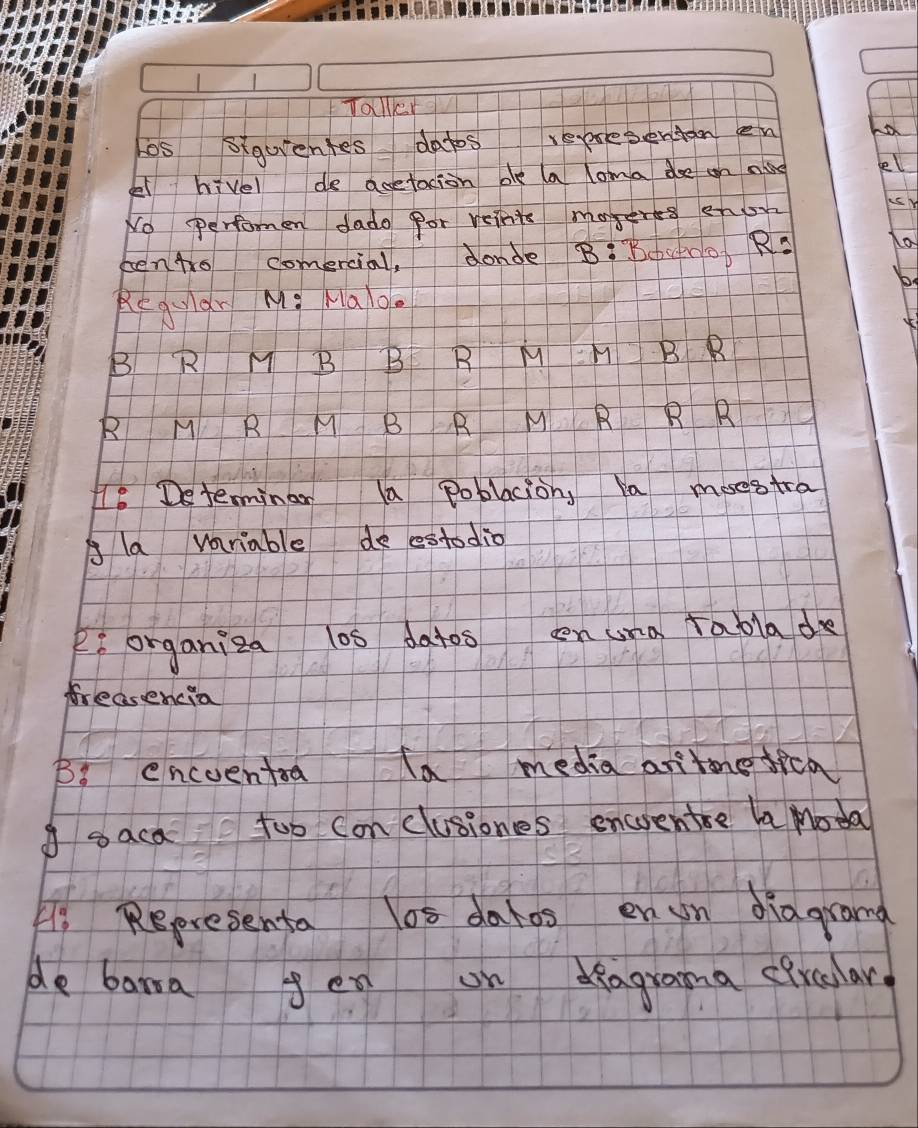 Taller
Los siguientes datos representan en
el nivel de acetacion de la loma de un nue
vo perfomen dado por veinte mogeres en un
centro comercial, donde B: Boueno, R:
Regular M: Malo.
B R M B B B M M B R
R M R M B R M R R R
1: Determinar la poblacion, la moestra
y la variable de estodio
2: organiza los datos en una tabla de
frecuencia
3: encuentra la media aritmetica
y saca tus conclusiones encuentre la Moda
4: Representa los datos en un diagrama
de barra y en un diagrama circular.
La
el